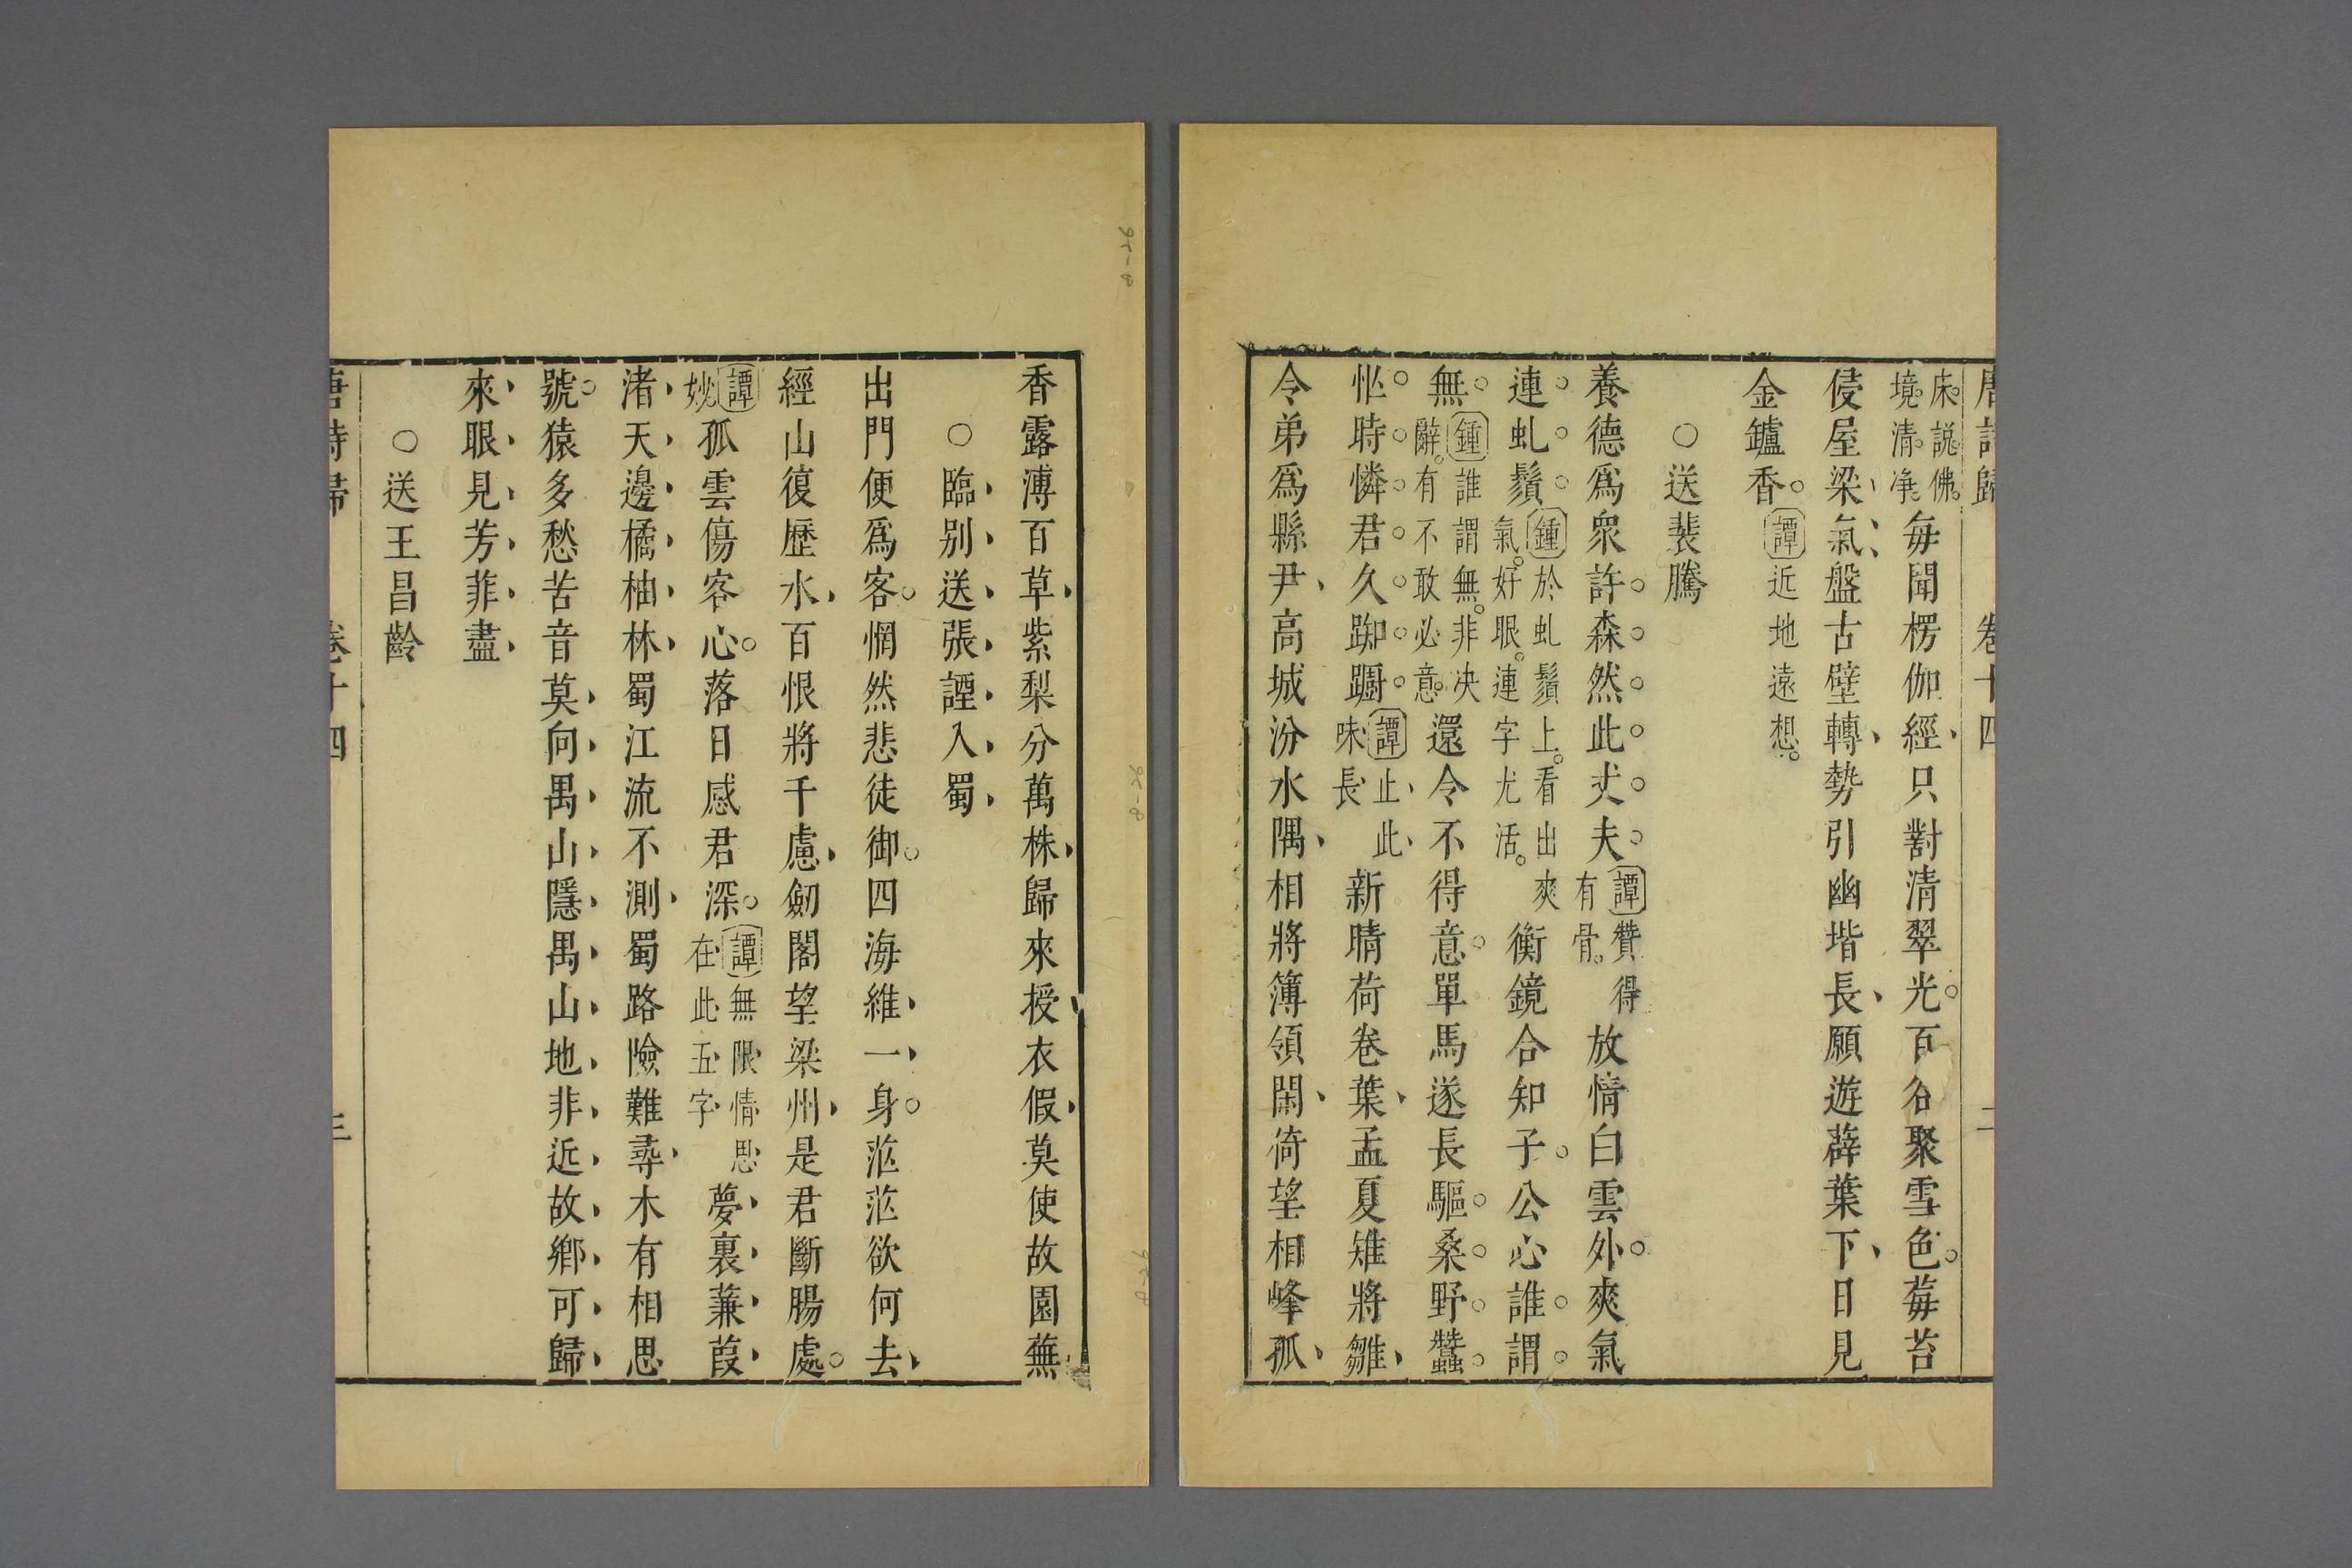 唐詩歸 卷十四 二
床說佛
境清凈
每聞楞伽經只對清翠光百谷聚雪色莓苔
侵屋梁氣盤古壁轉勢引幽堦長願遊薜葉下日見
金鑪香
譚近地遠想
○送裴騰
養德爲衆許森然此丈夫
譚贊得
有骨
放情白雲外爽氣
連虬鬚
鍾於虬鬚上看出爽
氣好眼連字尤活
衡鏡合知子公心誰謂
無
鍾誰謂無非决
辭有不敢必意
還令不得意單馬遂長驅桑野蠶
忙時憐君久踟躕
譚止此
味長
新晴荷卷葉孟夏雉將雛
令弟爲縣尹高城汾水隅相將簿領閑倚望相峰孤
香露溥百草紫梨分萬株歸來授衣假莫使故園蕪
○臨別送張諲入蜀
出門便爲客惘然悲徒御四海維一身茫茫欲何去
經山復歷水百恨將千慮劒閣望梁州是君斷腸處
譚
妙
孤雲傷客心落日感君深
譚無限情思
在此五字
夢裏蒹葭
渚天邊橘柚林蜀江流不測蜀路險難尋木有相思
號猿多愁苦音莫向禺山隱禺山地非近故鄉可歸
來眼見芳菲盡
○送王昌齡
唐詩歸 卷十四 三